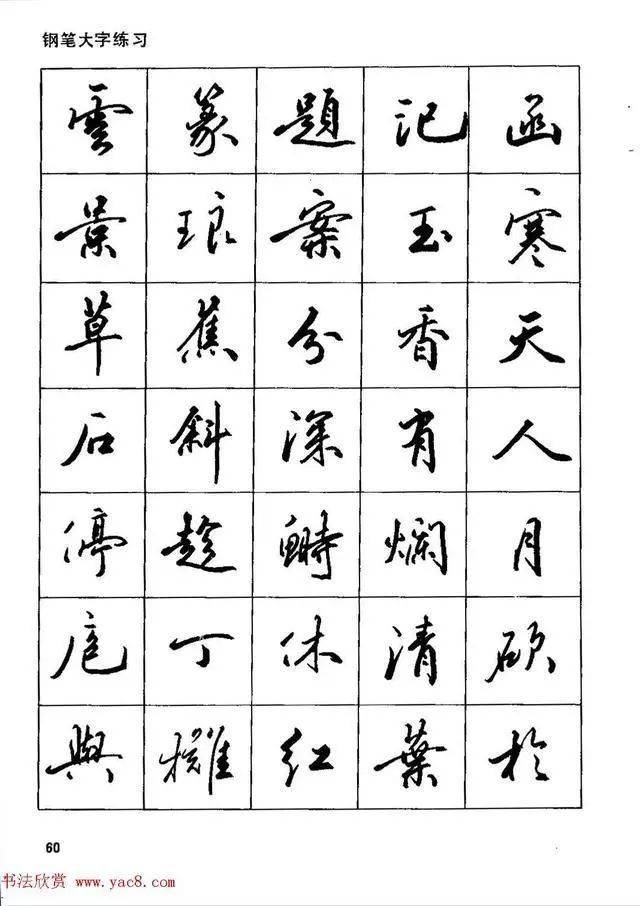 钢笔大字练习
雲篆題記函
景琅案玉寒
草蕉分香天
石斜深有人
停趁鰣爛月
丁休清碩
與紅葉於
60
书法欣赏 www.yac8.com